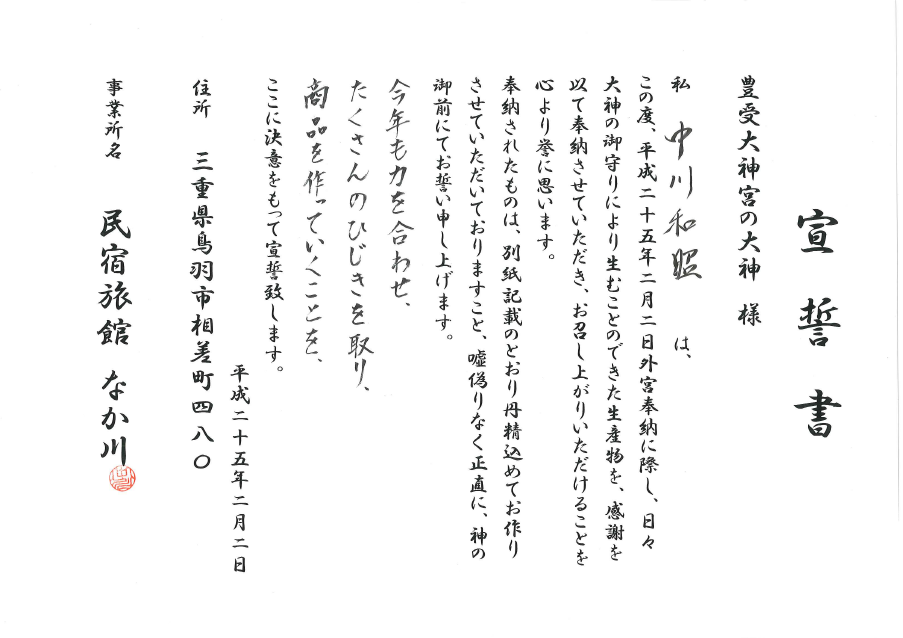 宣誓書
豊受大神宮の大神 様
私 中川和照 は、
この度、平成二十五年二月二日外宮奉納に際し、日々
大神の御守りにより生むことのできた生産物を、感謝を
以て奉納させていただき、お召し上がりいただけることを
心より誉に思います。
奉納されたものは、別紙記載のとおり丹精込めてお作り
させていただいておりますこと、嘘偽りなく正直に、神の
御前にてお誓い申し上げます。
今年も力を合わせ、
たくさんのひじきを取り、
商品を作っていくことを、
ここに決意をもって宣誓致します。
平成二十五年二月二日
住所 三重県鳥羽市相差町四八〇
事業所名 民宿旅館 なか川